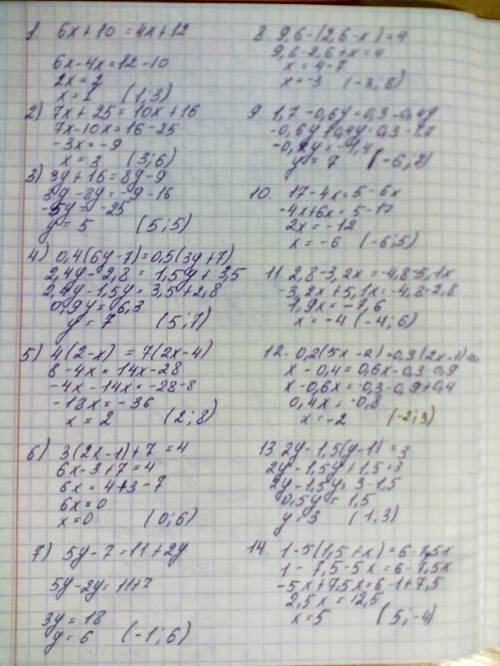 1 6x+10=4x+12
6x-4x=12-10
2x=2
x=1 (1,3)
2) 7x+25=10x+16
7x-10x=16-25
-3x=-9
x=3 (3;6)
3) 3y+16=8y-9
3y-8y=-9-16
-5y=-25
y=5 (5;5)
4) 0,4(6y-7)=0,5(3y+7)
2,4y-2,8=1,5y+3,5
2,4y-1,5y=3,5+2,8
0,9y=6,3
y=7 (5;7)
5) 4(2-x)=7(2x-4)
8-4x=14x-28
-4x-14x=-28-8
-18x=-36
x=2 (2;8)
6) 3(2x-1)+7=4
6x-3+7=4
6x=4+3-7
6x=0
x=0 (0;6)
7) 5y-7=11+2y
5y-2y=11+7
3y=18
y=6 (-1;6)
8. 9,6-(2,6-x)=4
9,6-2,6+x=4
x=4-7
x=-3 (-3;8)
9. 1,7-0,6y=0,3-0,4y
-0,6y+0,4y=0,3-1,7
-0,2y=-1,4
y=7 (-6,7)
10. 17-4x=5-6x
-4x+6x=5-17
2x=-12
x=-6 (-6;5)
11. 2,8-3,2x=-4,8-5,1x
-3,2x+5,1x=-4,8-2,8
1,9x=-7,6
x=-4 (-4;6)
12. 0,2(5x-2)=0,3(2x-1)
x-0,4=0,6x-0,3-0,9
x-0,6x=-0,3-0,9+0,4
0,4x=-0,8
x=-2 (-2;3)
13. 2y-1,5(y-1)=3
2y-1,5y+1,5=3
2y-1,5y=3-1,5
0,5y=1,5
y=3 (1,3)
14. 1-5(1,5+x)=6-7,5x
1-7,5-5x=6-7,5x
-5x+7,5x=6-1+7,5
2,5x=12,5
x=5 (5;-4)